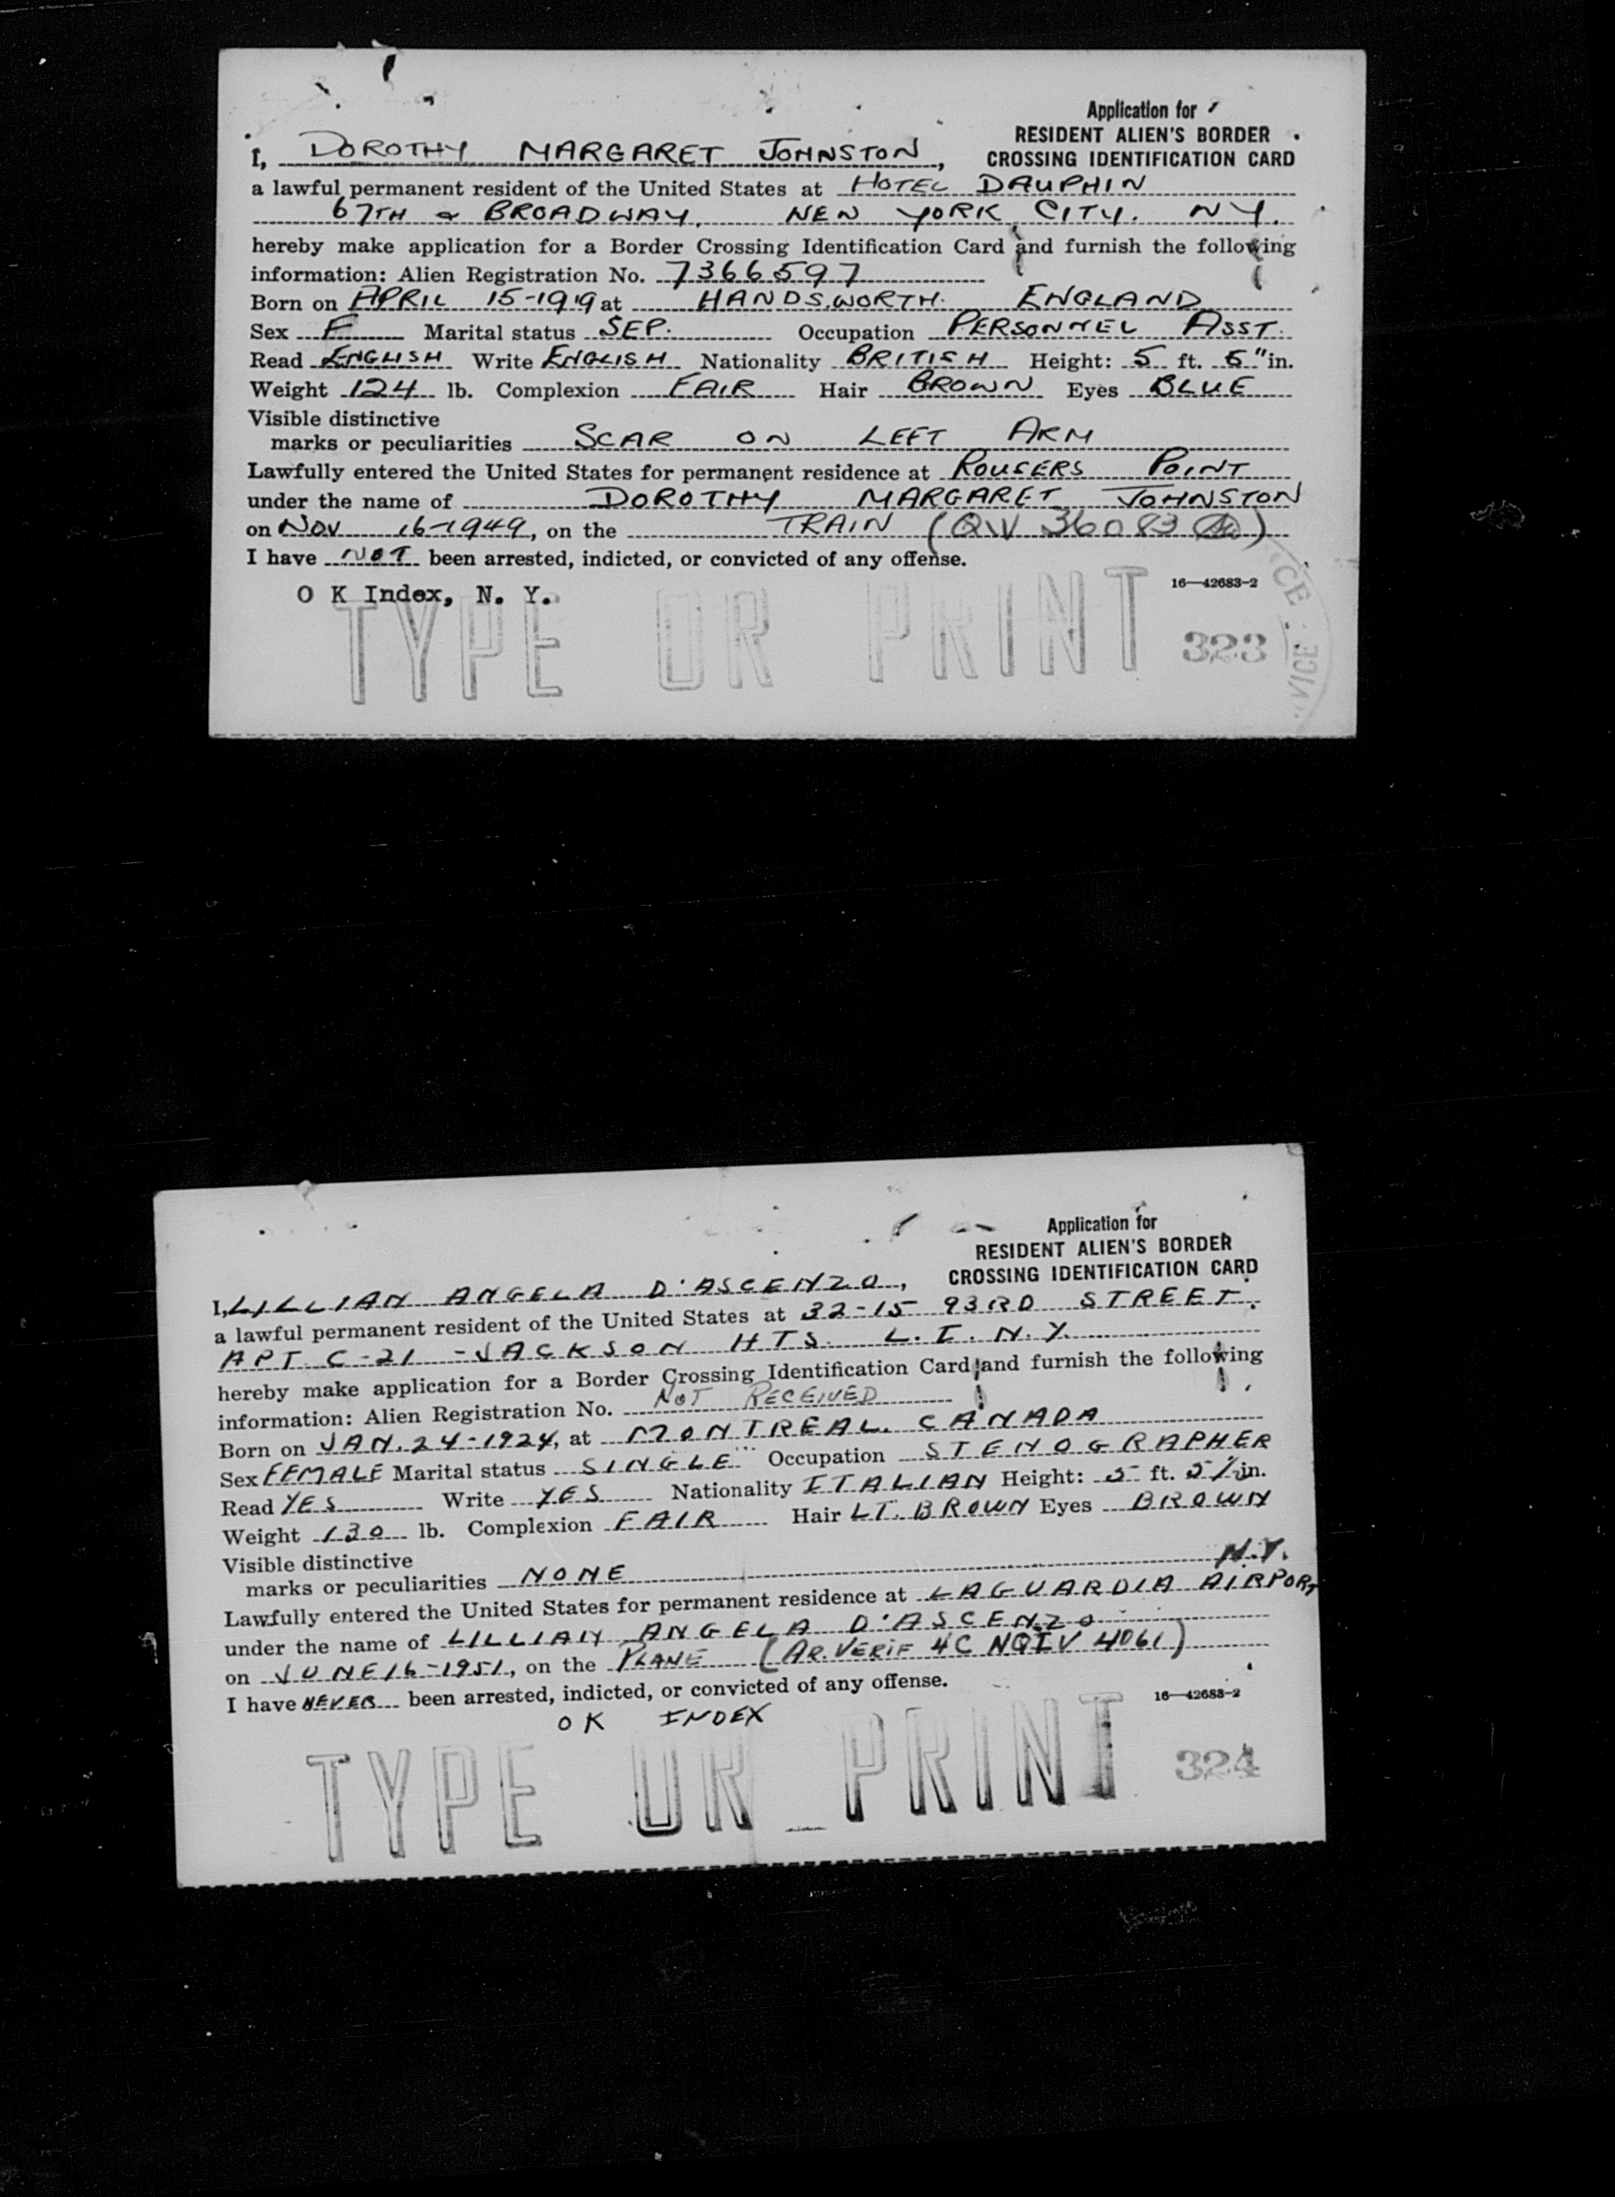 Application for
RESIDENT ALIEN'S BORDER
CROSSING IDENTIFICATION CARD
I, DOROTHY MARGARET JOHNSTON,
a lawful permanent resident of the United States at HOTEL DAUPHIN
67TH & BROADWAY, NEW YORK CITY. NY.
hereby make application for a Border Crossing Identification Card and furnish the following
information: Alien Registration No. 7366597
Born on APRIL 15-1919 at HANDSWORTH. ENGLAND
Sex F Marital status SEP. Occupation PERSONNEL ASST.
Read ENGLISH Write ENGLISH Nationality BRITISH Height: 5 ft. 5" in.
Weight 124 lb. Complexion FAIR Hair BROWN Eyes BLUE
Visible distinctive
marks or peculiarities SCAR ON LEFT ARM
Lawfully entered the United States for permanent residence at ROUSERS POINT
under the name of DOROTHY MARGARET JOHNSTON
on NOV 16-1949, on the TRAIN (QIV 36083)
I have NOT been arrested, indicted, or convicted of any offense.
16—42683-2
O K Index, N. Y.
TYPE OR PRINT 323
VICE
Application for
RESIDENT ALIEN'S BORDER
CROSSING IDENTIFICATION CARD
I, LILLIAN ANGELA D'ASCENZO,
a lawful permanent resident of the United States at 32-15 93RD STREET.
APT C-21 - JACKSON HTS. L.I. N.Y.
hereby make application for a Border Crossing Identification Card and furnish the following
information: Alien Registration No. NOT RECEIVED
Born on JAN. 24-1924, at MONTREAL. CANADA
Sex FEMALE Marital status SINGLE Occupation STENOGRAPHER
Read YES Write YES Nationality ITALIAN Height: 5 ft. 5½ in.
Weight 130 lb. Complexion FAIR Hair LT. BROWN Eyes BROWN
Visible distinctive
marks or peculiarities NONE
N.Y.
Lawfully entered the United States for permanent residence at LAGUARDIA AIRPORT
under the name of LILLIAN ANGELA D'ASCENZO
on JUNE 16-1951, on the PLANE (AR. VERIF 4C NQIV 4061)
I have NEVER been arrested, indicted, or convicted of any offense.
16—42683-2
OK INDEX
TYPE OR PRINT 324